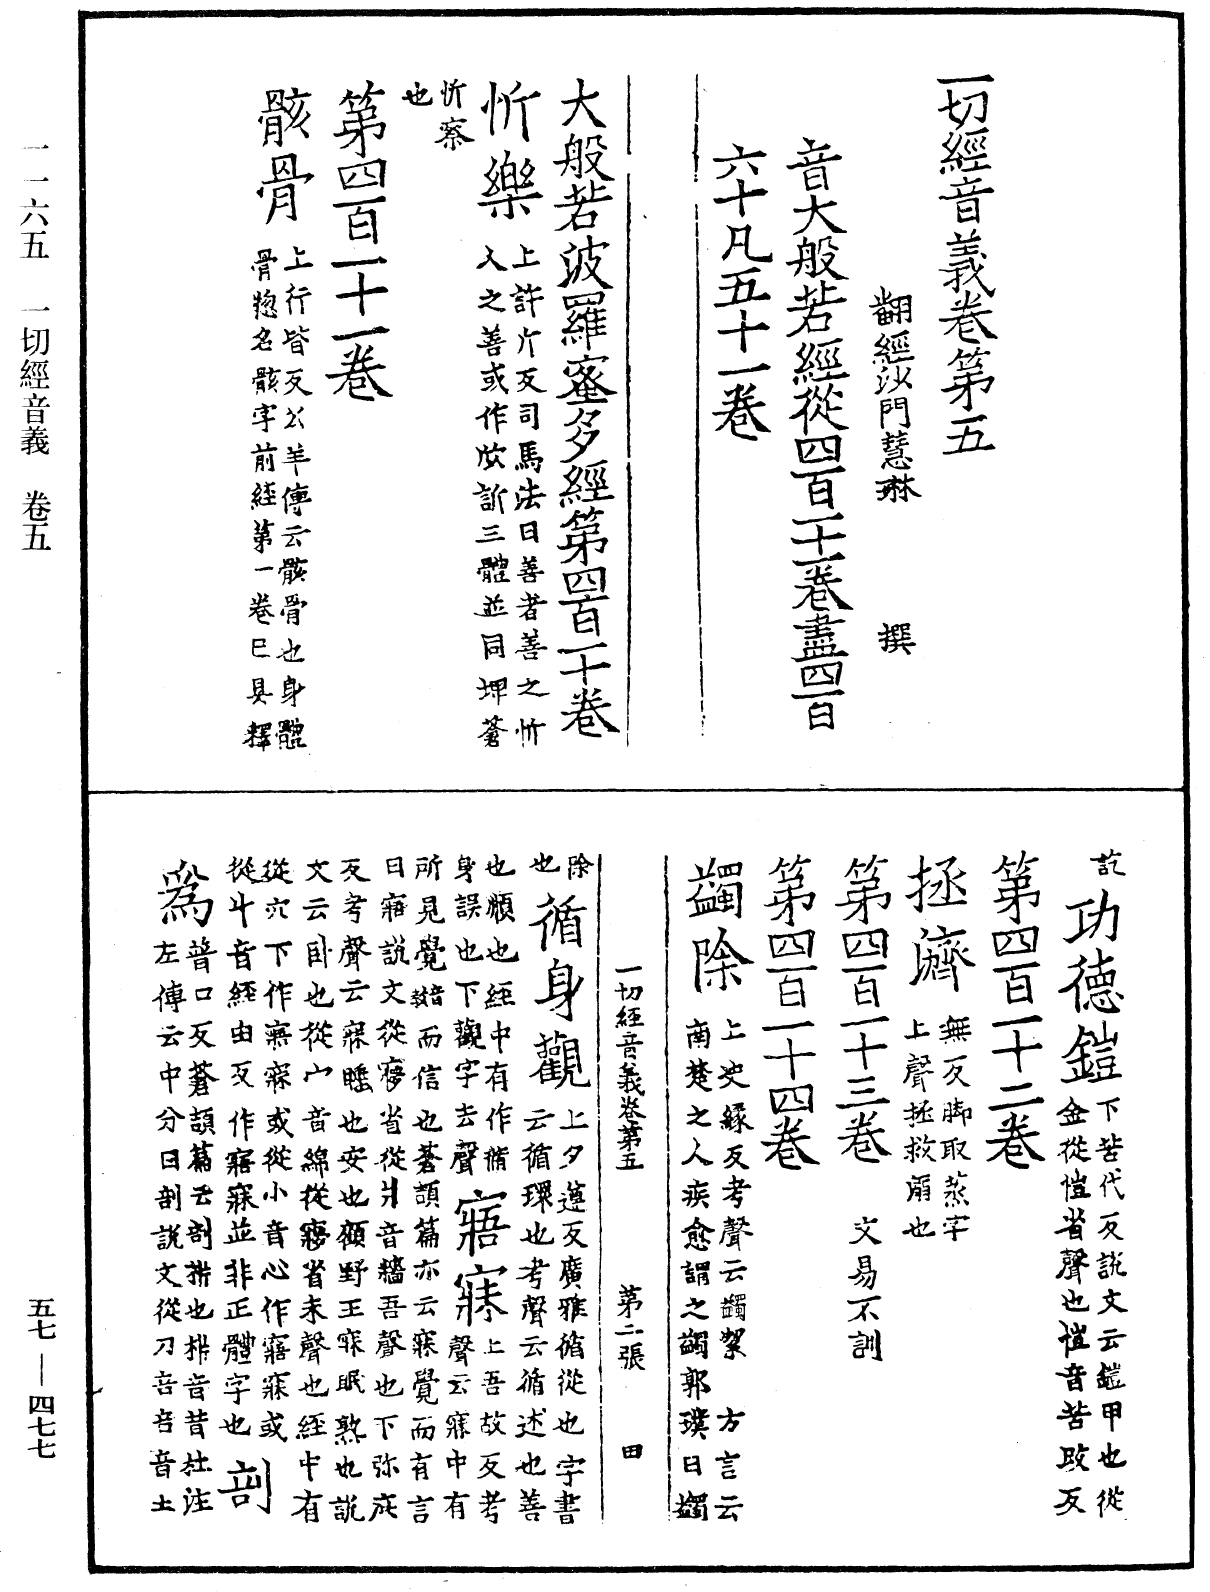 一切經音義卷第五
翻經沙門慧琳 撰
音大般若經從四百一十一卷盡四百
六十凡五十一卷
大般若波羅蜜多經第四百一十卷
忻樂
上許斤反司馬法曰善者善之忻
人之善或作欣訢三體並同埤蒼
忻察
也
第四百一十一卷
骸骨
上行皆反公羊傳云骸骨也身體
骨惣名骸字前經第一卷已具釋
訖
功德鎧
下苦代反說文云鎧甲也從
金從愷省聲也愷音苦改反
第四百一十二卷
拯濟
無反脚取蒸字
上聲拯救溺也
第四百一十三卷 文易不訓
第四百一十四卷
蠲除
上史緣反考聲云蠲絜 方言云
南楚之人疾愈謂之蠲郭璞曰蠲
一切經音義卷第五 第二張 田
除
也
循身觀
上夕遵反廣雅循從也字書
云循環也考聲云循述也善
也順也經中有作脩
身誤也下觀字去聲
寤寐
上吾故反考
聲云寐中有
所見覺而信也蒼頡篇亦云寐覺而有言
曰寤說文從㝱省從爿音牆吾聲也下弥庇
反考聲云寐瞻也安也顧野王寐眠熟也說
文云臥也從宀音綿從㝱省未聲也經中有
從穴下作寐寐或從小音心作寤寐或
從斗音經由反作寤寐並非正體字也
剖
為
普口反蒼頡篇云剖析也析音昔杜注
左傳云中分曰剖說文從刀咅咅音土
一一六五 一切經音義 卷五
五七—四七七